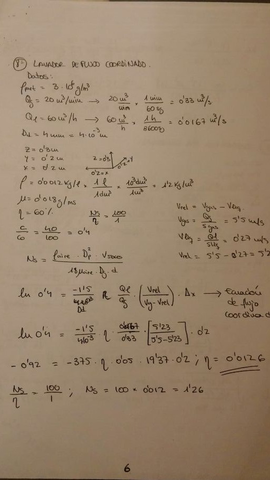 8- LAVADOR DE FLUJO COORDINADO.
Datos:
ρpart = 3·10⁶ g/m³
Qg = 20 m³/min → 20 m³/min × 1 min/60 sg = 0'33 m³/s
Ql = 60 m³/h → 60 m³/h × 1h/3600s = 0'0167 m³/s
Dd = 4 mm → 4·10⁻³ m
Z = 0'3m
Y = 0'2 m
X = 0'2 m
Z = 0'3
ρ = 0'0012 kg/l × 1 l/1 dm³ × 10³ dm³/1 m³ = 1'2 kg/m³
μ = 0'018 g/ms
η = 60%
Ns/η = 100/1
C/C₀ = 40/100 = 0'4
Vrel = Vgas - Vliq.
Vgas = Qg/Sgas = 5'5 m/s
Vliq = Ql/Sliq = 0'27 m/s
Vrel = 5'5 - 0'27 = 5'23
ln 0'4 = -1'5/Dd η Ql/Qg · (Vrel/(Vg-Vrel)) · Δx → Ecuación de flujo coordinado
ln 0'4 = -1'5/4·10⁻³ η 0'0167/0'33 · [5'23/(5'5-5'23)] · 0'2
- 0'92 = -375 · η 0'05 · 19'37 · 0'2 ; η = 0'0126
Ns/η = 100/1 ; Ns = 100 × 0'012 = 1'26
6